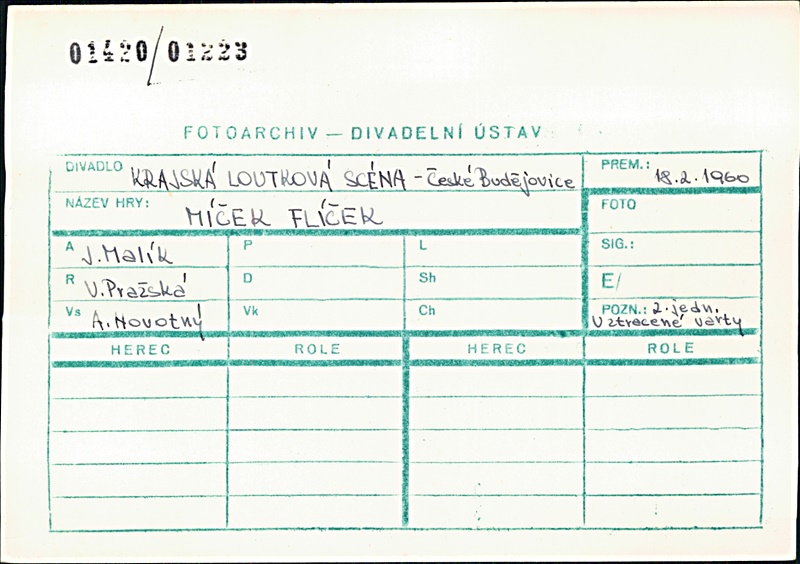 01420/01223
FOTOARCHIV — DIVADELNÍ ÚSTAV
DIVADLO KRAJSKÁ LOUTKOVÁ SCÉNA - České Budějovice PREM.: 18.2.1960
NÁZEV HRY: MÍČEK FLÍČEK FOTO
A J. Malík P L SIG.:
R V. Pražská D Sh E/
Vs A. Novotný Vk Ch POZN.: 2. jedn.
V ztracené varty
HEREC ROLE HEREC ROLE